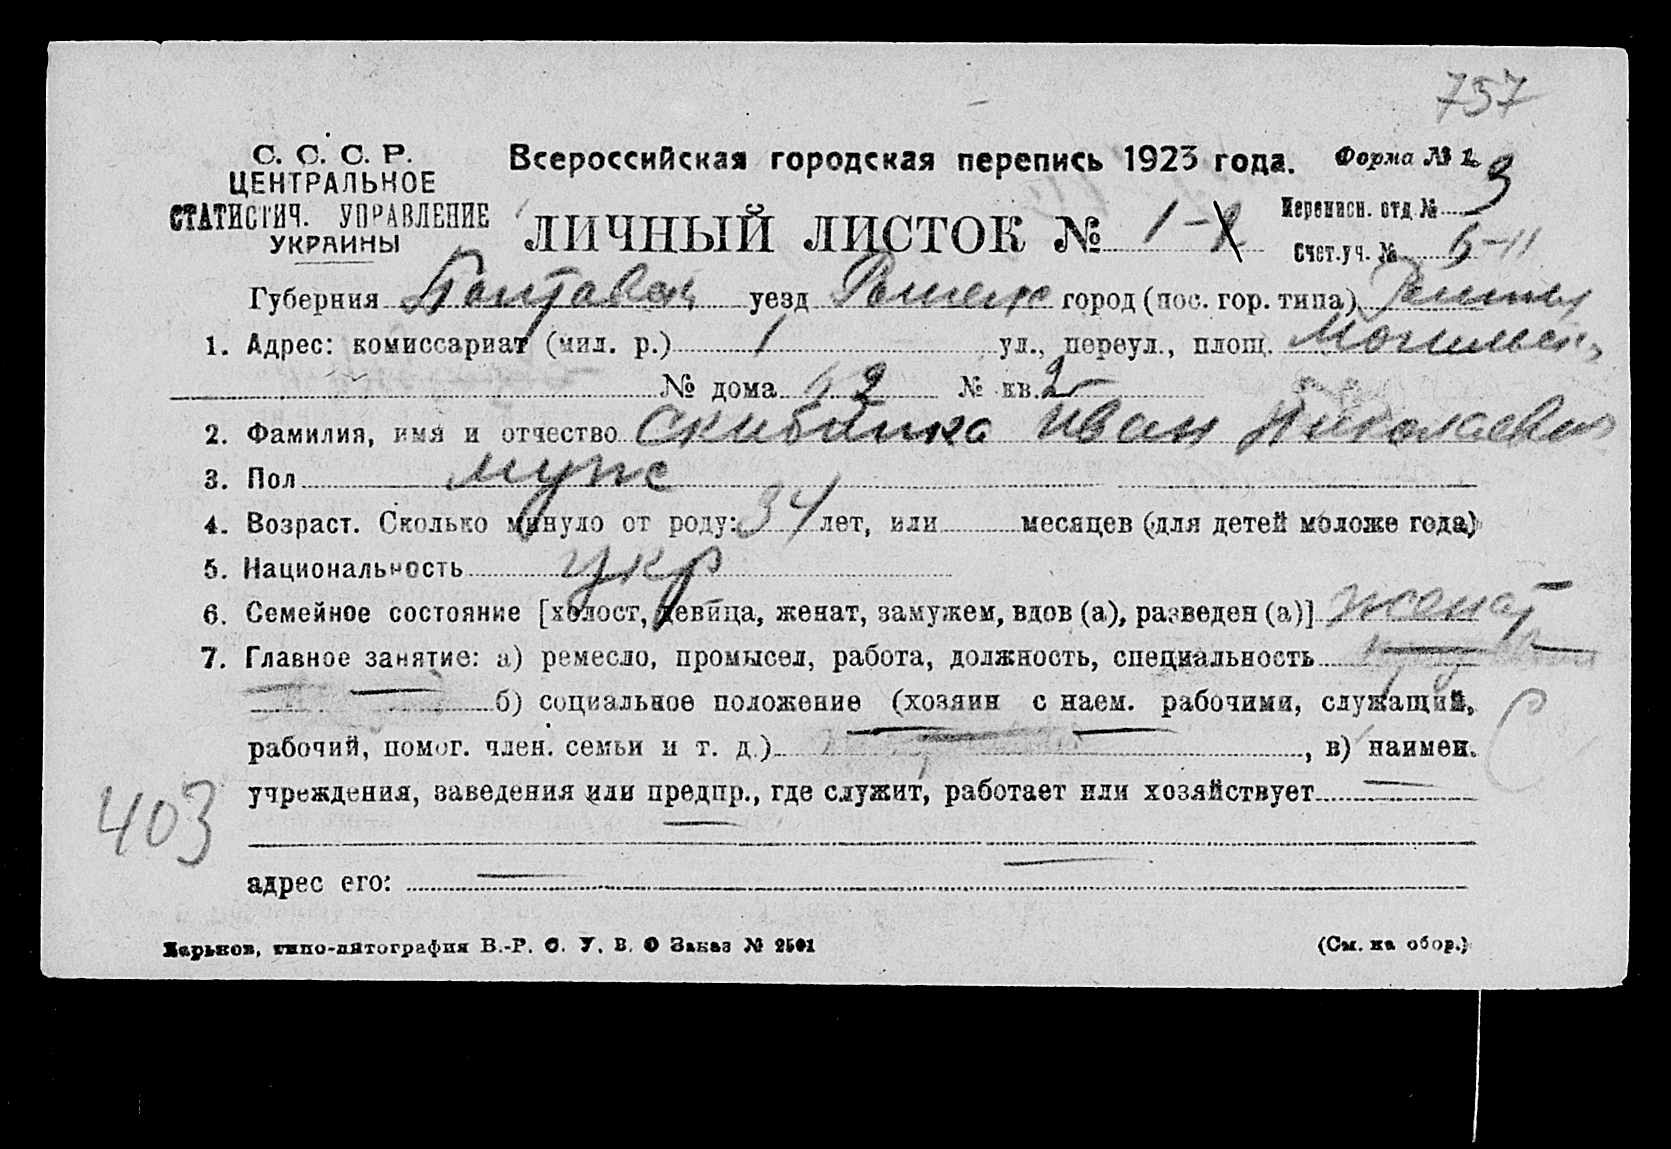 757
С. С. С. Р.
ЦЕНТРАЛЬНОЕ
СТАТИСТИЧ. УПРАВЛЕНИЕ
УКРАИНЫ
Всероссийская городская перепись 1923 года.
Форма № 1.
ЛИЧНЫЙ ЛИСТОК № 1-
Переписн. отд. № 3
Счет. уч. № 6-11
Губерния Полтавск уезд Роменск город (пос. гор. типа) Ромны
1. Адрес: комиссариат (мил. р.) 1 ул., переул., площ.
№ дома 62 № кв. 2
2. Фамилия, имя и отчество Скибинка Иван Николаевич
3. Пол муж
4. Возраст. Сколько минуло от роду: 34 лет, или месяцев (для детей моложе года)
5. Национальность укр
6. Семейное состояние [холост, девица, женат, замужем, вдов (а), разведен (а)] женат
7. Главное занятие: а) ремесло, промысел, работа, должность, специальность
б) социальное положение (хозяин с наем. рабочими, служащий,
рабочий, помог. член. семьи и т. д.) , в) наимен.
учреждения, заведения или предпр., где служит, работает или хозяйствует
403
адрес его:
Харьков, типо-литография В.-Р. С. У. В. О Заказ № 2501
(См. на обор.)